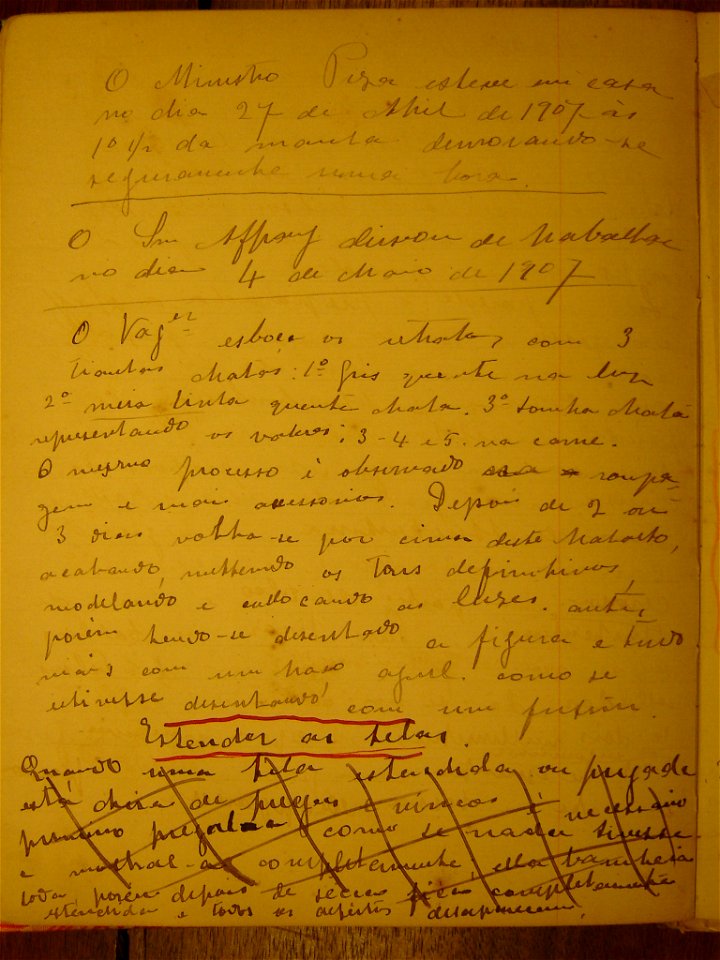 O Ministro Piza esteve em casa
no dia 27 de Abril de 1907 ás
10 1/2 da manhã demorando-se
seguramente uma hora.
O Snr deixou de trabalhar
no dia 4 de Maio de 1907
O Vag^er esboça os retratos com 3
tintas chatas: 1º Gris quente na luz
2º meia tinta quente chata. 3º sombra chata
representando os valores: 3-4 e 5. na carne.
O mesmo processo é observado roupa-
gem e mais acessorios. Depois de 2 ou
3 dias volta-se por cima deste trabalho,
acabando, mettendo os tons definitivos,
modelando e collocando as luzes. antes,
porém tendo-se desenhado a figura e tudo
mais com um traço azul. como se
estivesse desenhando com um fusain.
Estender as telas.
Quando uma tela estendida ou pregada
está cheia de pregas e vincos é necessario
primeiro pregal-a como se nada tivesse
e molhal-a completamente; ella bambeia
toda, porém depois de secca fica completamente
estendida e todos os defeitos desaparecem.